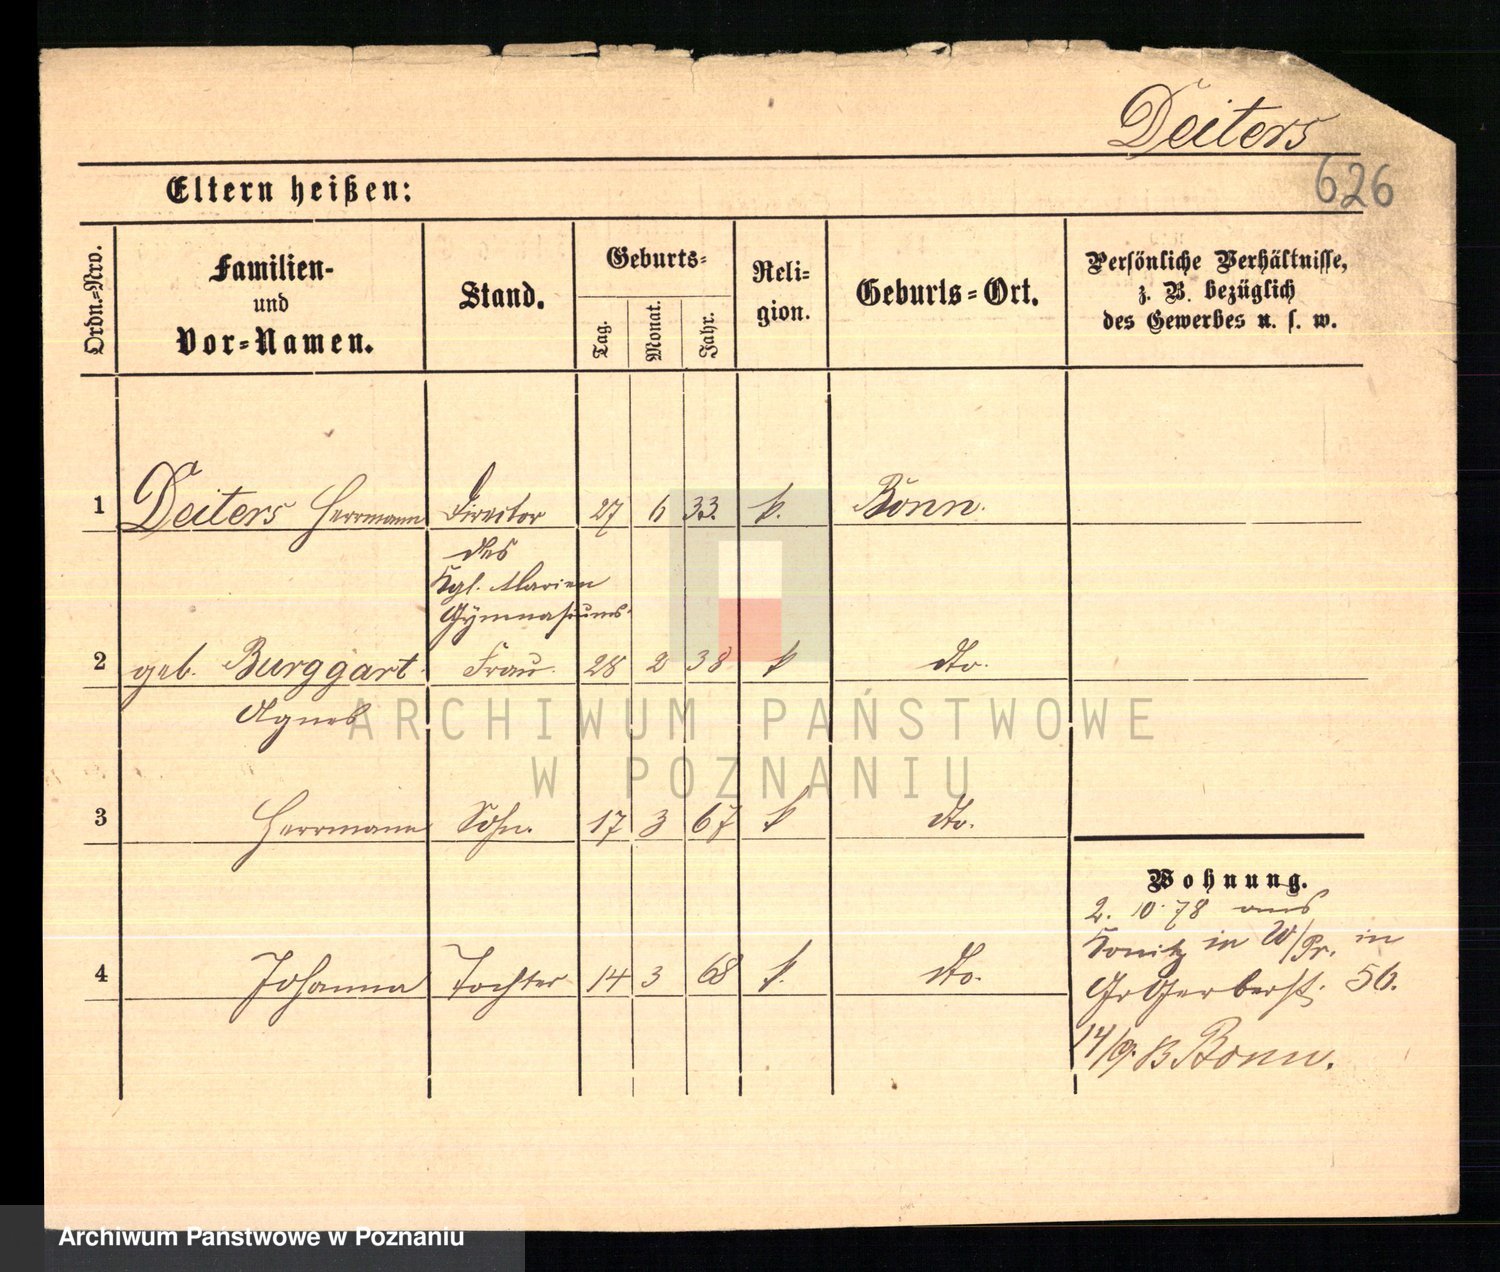 Deiters
626
Eltern heißen:
Ordn.-Nro.
Familien-
und
Vor-Namen.
Stand.
Geburts-
Tag.
Monat.
Jahr.
Reli-
gion.
Geburts-Ort.
Persönliche Verhältnisse,
z. B. bezüglich
des Gewerbes u. s. w.
1 Deiters Herrmann Director 27 6 33. k. Bonn.
des
Kgl. Marien
Gymnasiums
2 geb. Burggart Frau 28 2 38 k dto.
Agnes
3 Herrmann Sohn. 17 3 67 k dto.
4 Johanna Tochter 14 3 68 k. dto.
Wohnung.
2. 10. 78 aus
Konitz in W/Pr. in
Gr Gerberst. 56.
14/9. Bonn.
ARCHIWUM PAŃSTWOWE
W POZNANIU
Archiwum Państwowe w Poznaniu